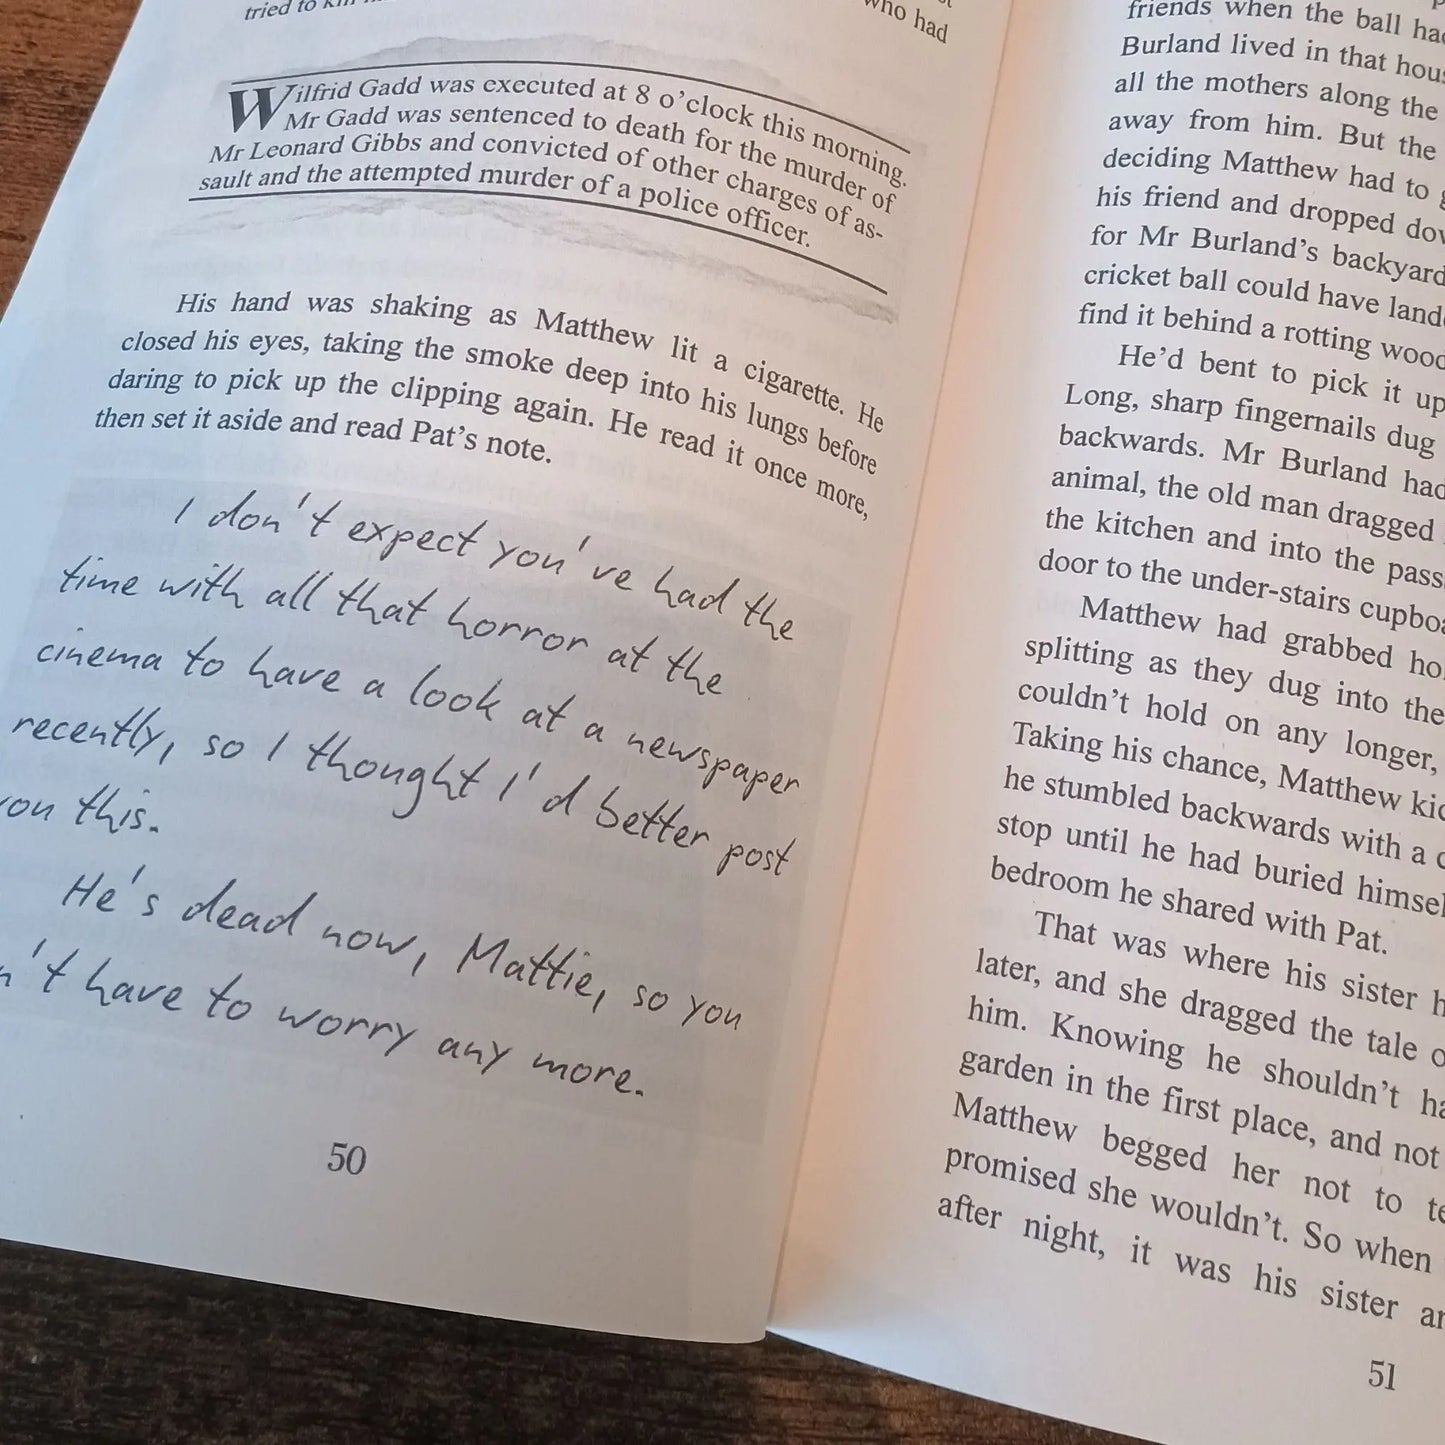 tried to
who had
Wilfrid Gadd was executed at 8 o’clock this morning.
Mr Gadd was sentenced to death for the murder of
Mr Leonard Gibbs and convicted of other charges of as-
sault and the attempted murder of a police officer.
His hand was shaking as Matthew lit a cigarette. He
closed his eyes, taking the smoke deep into his lungs before
daring to pick up the clipping again. He read it once more,
then set it aside and read Pat’s note.
I don't expect you've had the
time with all that horror at the
cinema to have a look at a newspaper
recently, so I thought I'd better post
this.
He's dead now, Mattie, so you
have to worry any more.
50
friends when the ball
Burland lived in that
all the mothers along the
away from him. But the
deciding Matthew had to
his friend and dropped
for Mr Burland’s backyard
cricket ball could have
find it behind a rotting
He’d bent to pick it up
Long, sharp fingernails dug
backwards. Mr Burland had
animal, the old man dragged
the kitchen and into the
door to the under-stairs
Matthew had grabbed
splitting as they dug into the
couldn’t hold on any longer,
Taking his chance, Matthew
he stumbled backwards with a
stop until he had buried
bedroom he shared with Pat.
That was where his sister
later, and she dragged the tale
him. Knowing he shouldn’t
garden in the first place, and not
Matthew begged her not to
promised she wouldn’t. So when
after night, it was his sister
51